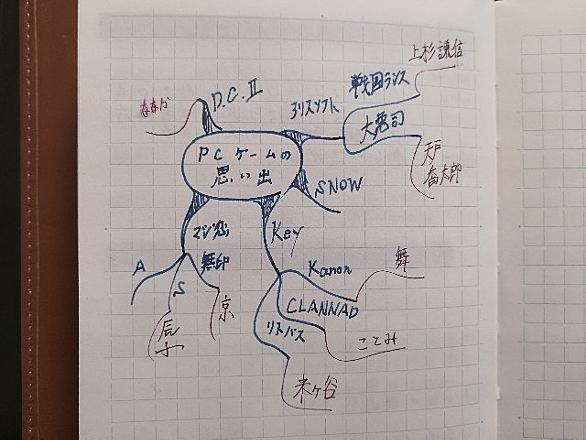 PCゲームの
思い出
D.C.Ⅱ
ななか
アリスソフト
戦国ランス
上杉謙信
大悪司
SNOW
Key
Kanon
舞
CLANNAD
ことみ
リトバス
来ヶ谷
マジ恋
無印
京
S
辰子
A